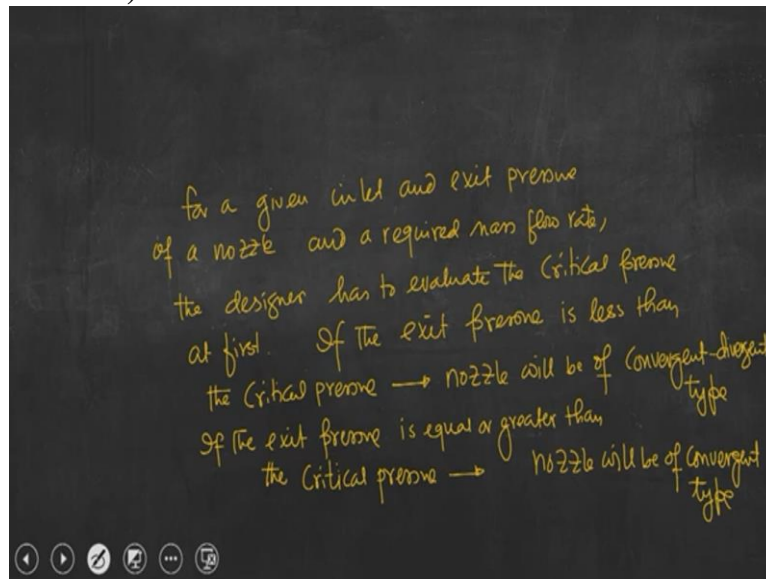 for a given inlet and exit pressure
of a nozzle and a required mass flow rate,
the designer has to evaluate the critical pressure
at first. If the exit pressure is less than
the critical pressure → nozzle will be of convergent-divergent
type
If the exit pressure is equal or greater than
the critical pressure → nozzle will be of convergent
type